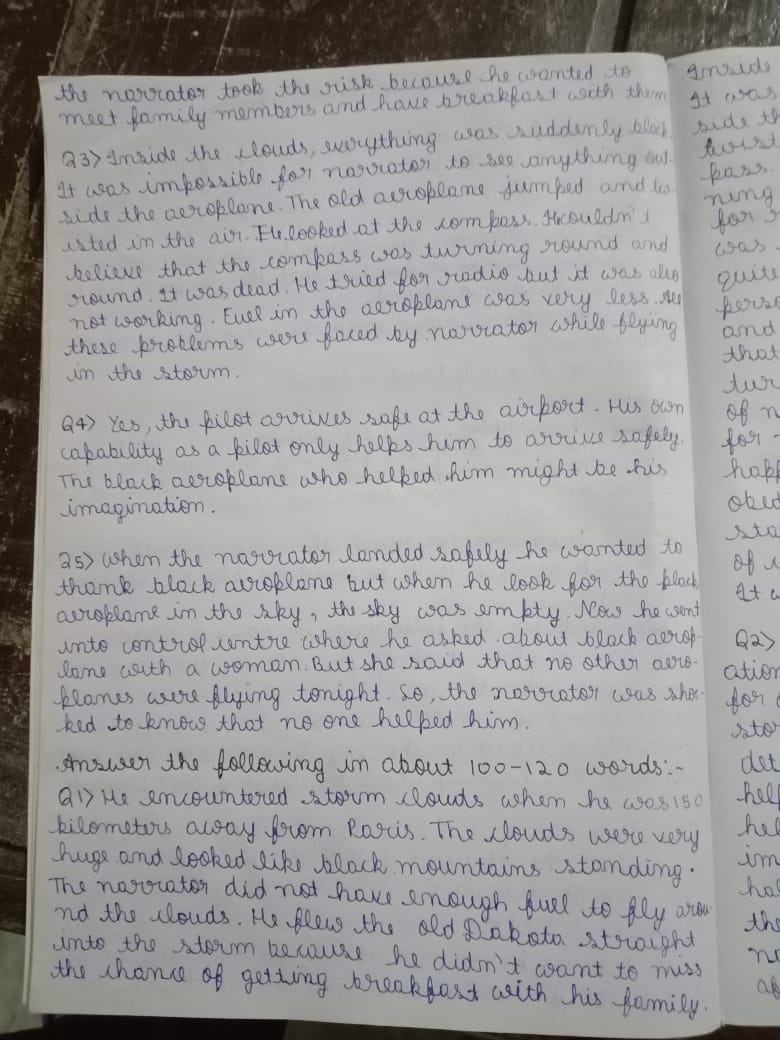 the narrator took the risk because he wanted to
meet family members and have breakfast with them
Q3> Inside the clouds, everything was suddenly black
It was impossible for narrator to see anything out-
side the aeroplane. The old aeroplane jumped and tw-
isted in the air. He looked at the compass. He couldn't
believe that the compass was turning round and
round. It was dead. He tried for radio but it was also
not working. Fuel in the aeroplane was very less. All
these problems were faced by narrator while flying
in the storm.
Q4> Yes, the pilot arrives safe at the airport. His own
capability as a pilot only helps him to arrive safely.
The black aeroplane who helped him might be his
imagination.
Q5> When the narrator landed safely he wanted to
thank black aeroplane but when he look for the black
aeroplane in the sky, the sky was empty. Now he went
into control centre where he asked about black aerop-
lane with a woman. But she said that no other aero-
planes were flying tonight. So, the narrator was shoc-
ked to know that no one helped him.
Answer the following in about 100-120 words:-
Q1> He encountered storm clouds when he was 150
kilometers away from Paris. The clouds were very
huge and looked like black mountains standing.
The narrator did not have enough fuel to fly arou-
nd the clouds. He flew the old Dakota straight
into the storm because he didn't want to miss
the chance of getting breakfast with his family.
Inside
It was
side th
twist
pass.
ning
for
was
quite
perso
and
that
tur
of n
for
happ
obed
sta
of
It w
Q2>
ation
for
sto
det
hel
hel
im
ha
the
no
ab